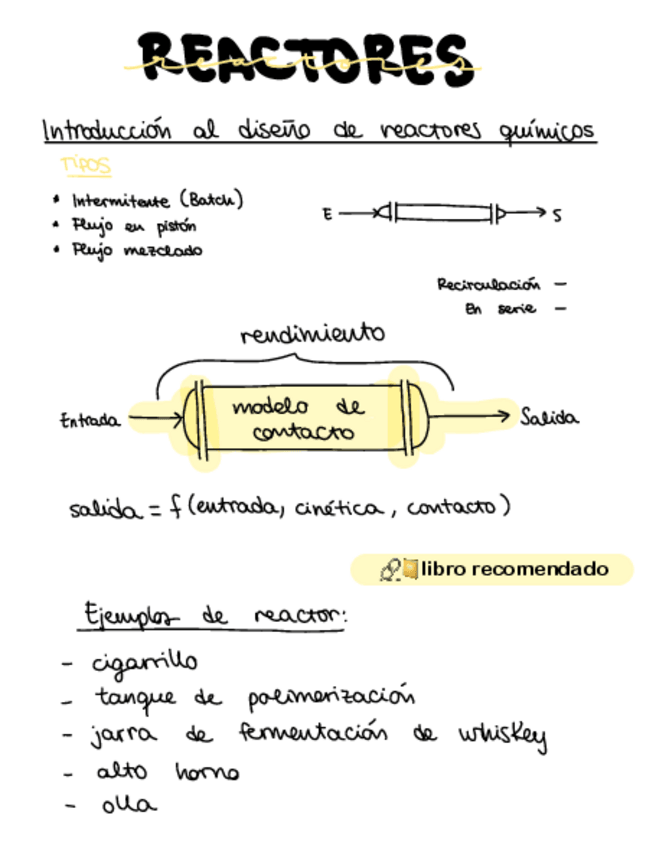 REACTORES
reactores
Introducción al diseño de reactores químicos
TIPOS
• Intermitente (Batch)
• Flujo en pistón
• Flujo mezclado
E S
Recirculación -
En serie -
rendimiento
Entrada
modelo de
contacto
Salida
salida = f (entrada, cinética, contacto)
libro recomendado
Ejemplos de reactor:
- cigarrillo
- tanque de polimerización
- jarra de fermentación de whiskey
- alto horno
- olla